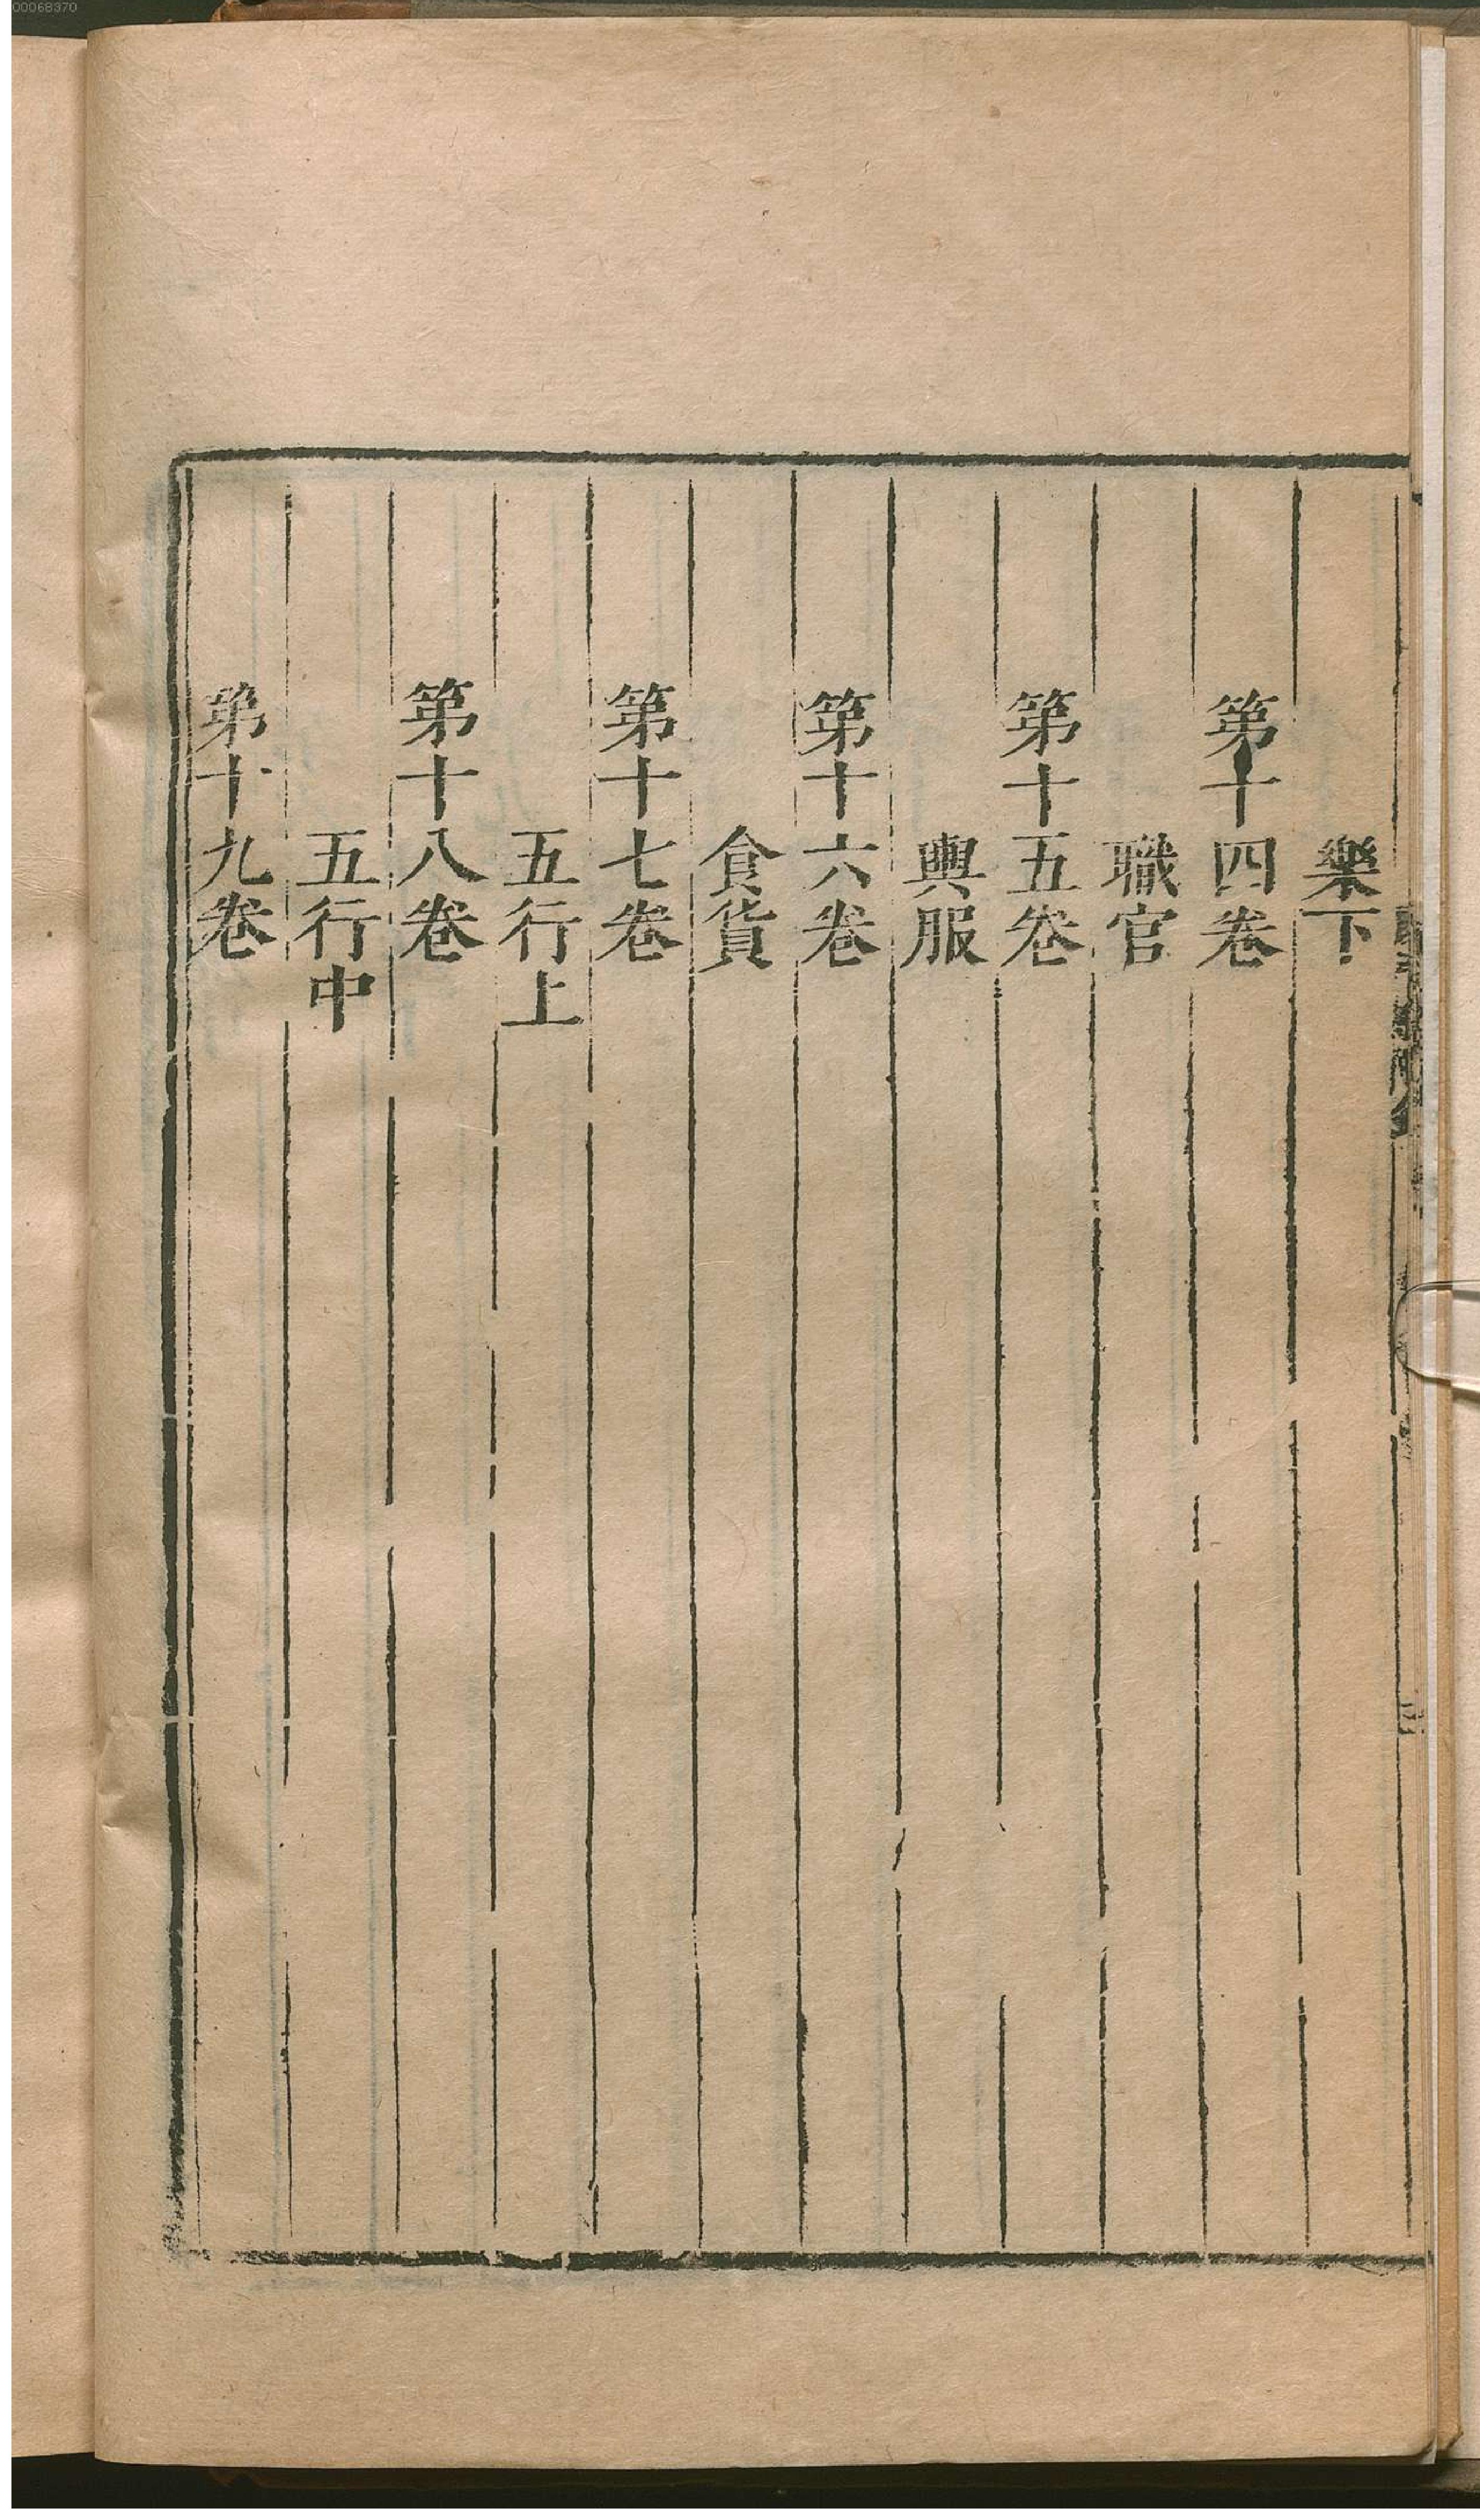 00068370
樂下
第十四卷
職官
第十五卷
輿服
第十六卷
食貨
第十七卷
五行上
第十八卷
五行中
第十九卷